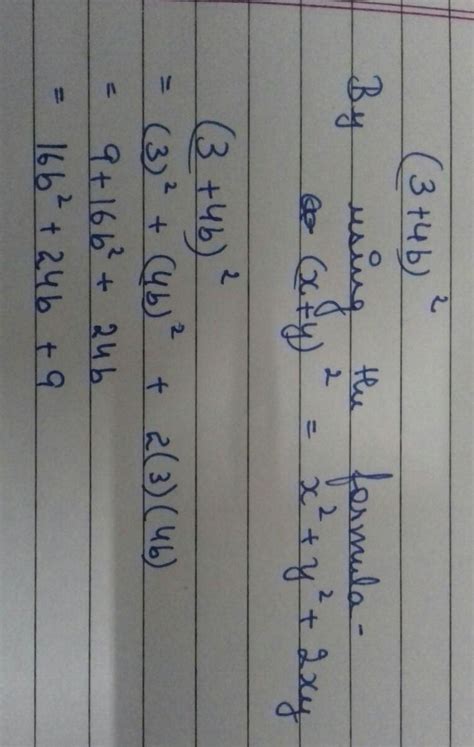 (3+4b)²
By using the formula-
(x+y)² = x² + y² + 2xy
(3 +4b)²
= (3)² + (4b)² + 2(3)(4b)
= 9+16b² + 24b
= 16b² + 24b + 9